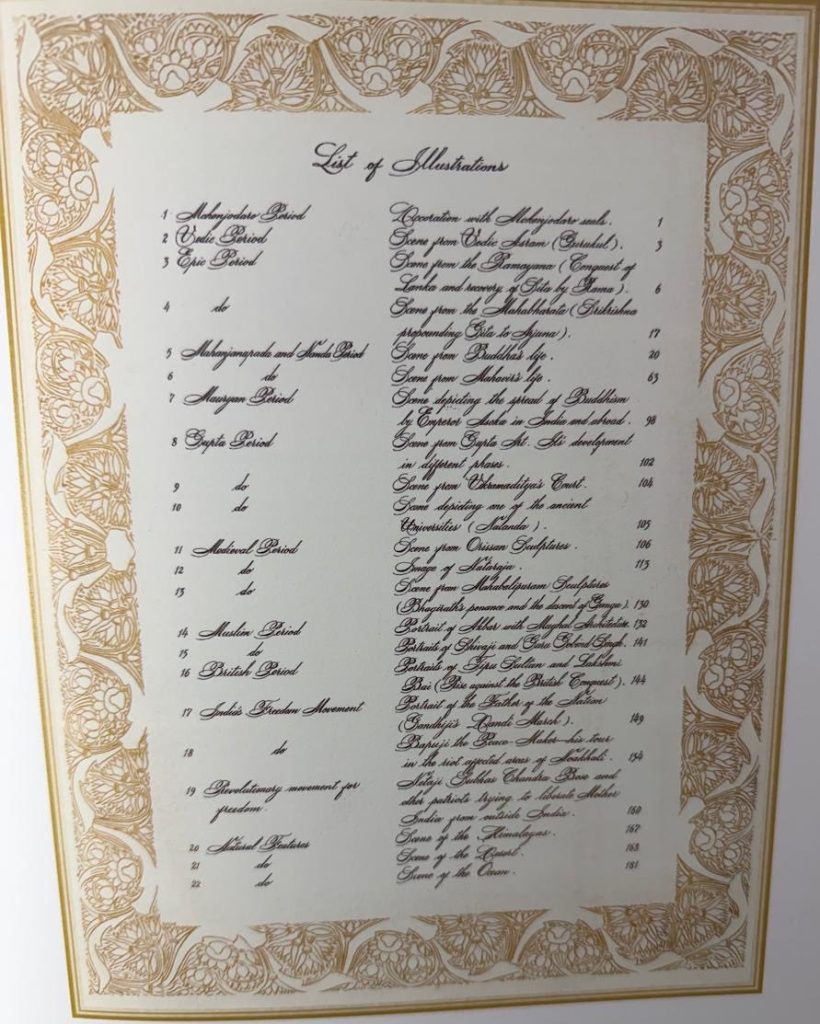 List of Illustrations
1 Mohenjodaro Period Decoration with Mohenjodaro seals. 1
2 Vedic Period Scene from Vedic Asram (Gurukul). 3
3 Epic Period Scene from the Ramayana (Conquest of
Lanka and recovery of Sita by Rama). 6
4 do Scene from the Mahabharata (Srikrishna
propounding Gita to Arjuna). 17
5 Mahanjanapada and Nanda Period Scene from Buddha's life. 20
6 do Scene from Mahavir's life. 63
7 Mauryan Period Scene depicting the spread of Buddhism
by Emperor Asoka in India and abroad. 98
8 Gupta Period Scene from Gupta Art. Its development
in different phases. 102
9 do Scene from Vikramaditya's Court. 104
10 do Scene depicting one of the ancient
Universities (Nalanda). 105
11 Medieval Period Scene from Orissan Sculptures. 106
12 do Image of Nataraja. 113
13 do Scene from Mahabalipuram Sculptures
(Bhagirath's penance and the descent of Ganga). 130
14 Muslim Period Portrait of Akbar with Mughal Architecture. 132
15 do Portraits of Shivaji and Guru Gobind Singh. 141
16 British Period Portraits of Tipu Sultan and Lakshmi
Bai (Rise against the British Conquest). 144
17 India's Freedom Movement Portrait of the Father of the Nation
(Gandhiji's Dandi March). 149
18 do Bapuji the Peace-Maker—his tour
in the riot affected areas of Noakhali. 154
19 Revolutionary movement for Netaji Subhas Chandra Bose and
freedom other patriots trying to liberate Mother
India from outside India. 160
20 Natural Features Scene of the Himalayas. 167
21 do Scene of the Desert. 168
22 do Scene of the Ocean. 181